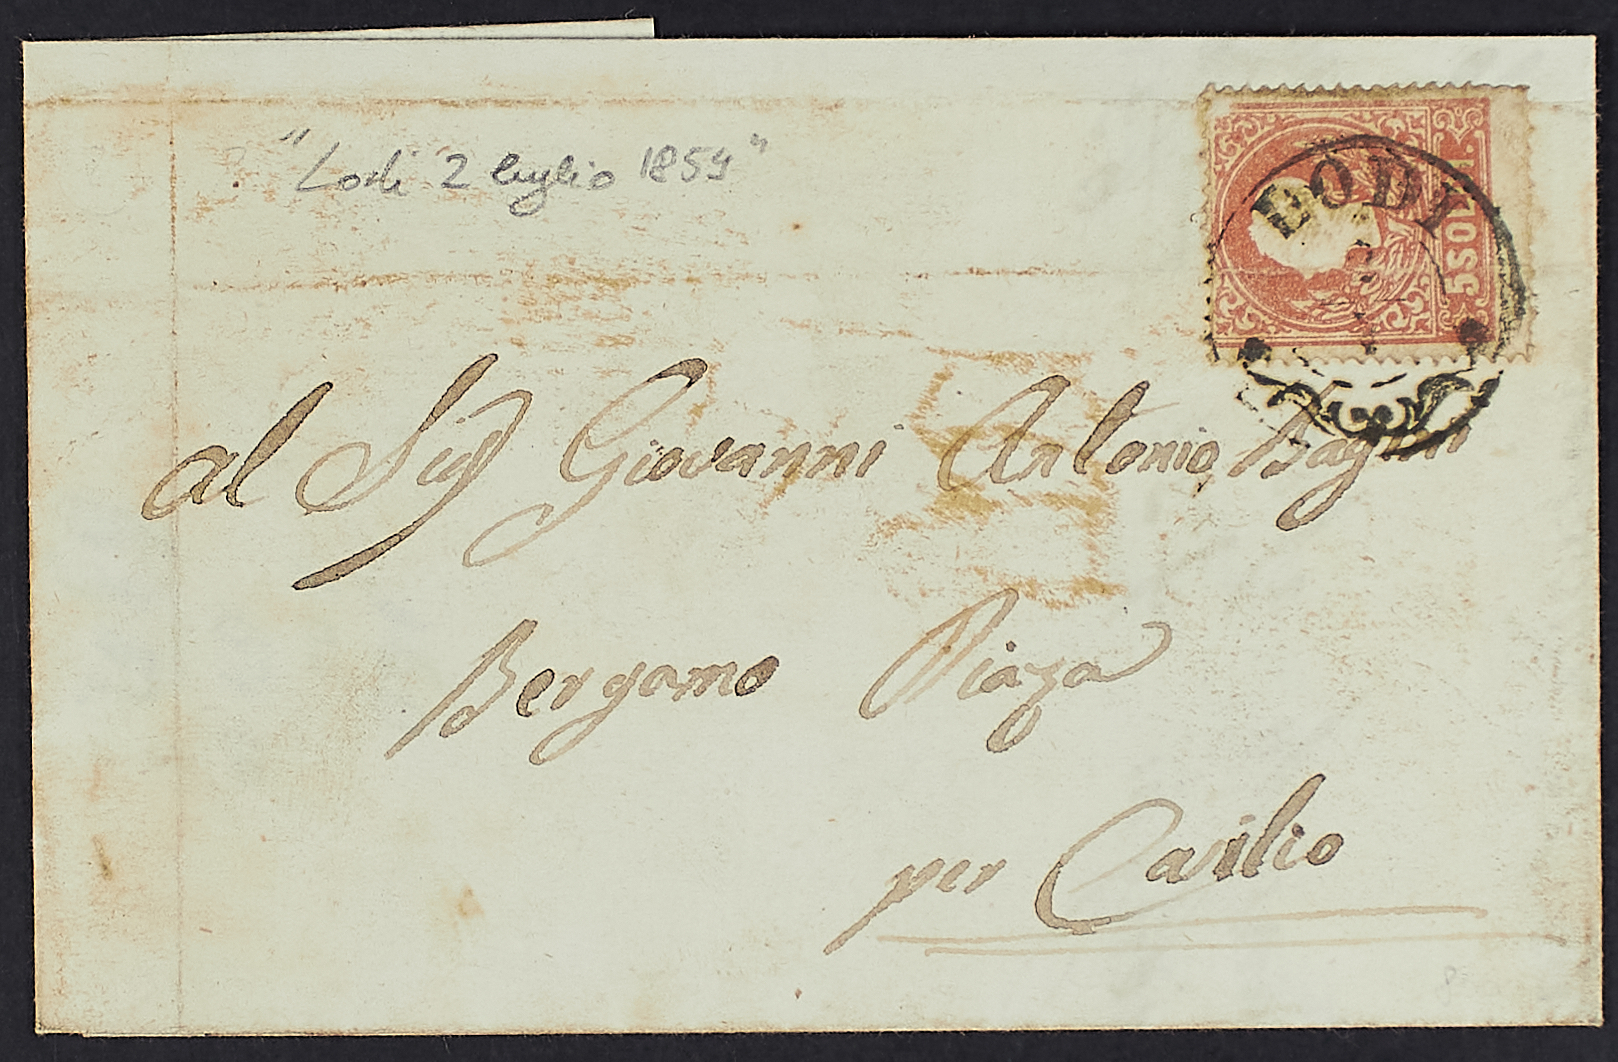 "Lodi 2 luglio 1859"
LODI
5 SOLDI
al Sig Giovanni Antonio
Bergamo Piaza
per Casilio